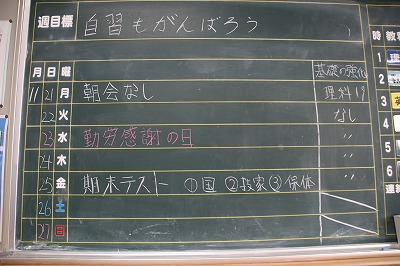 週目標 自習もがんばろう
月 日 曜 基礎の強化 時 教
11 21 月 朝会なし 理科19 1
22 火 なし 2
23 水 勤労感謝の日 〃 3
24 木 〃 4
25 金 期末テスト ①国 ②技家 ③保体 〃 5
26 土 6
27 日 連